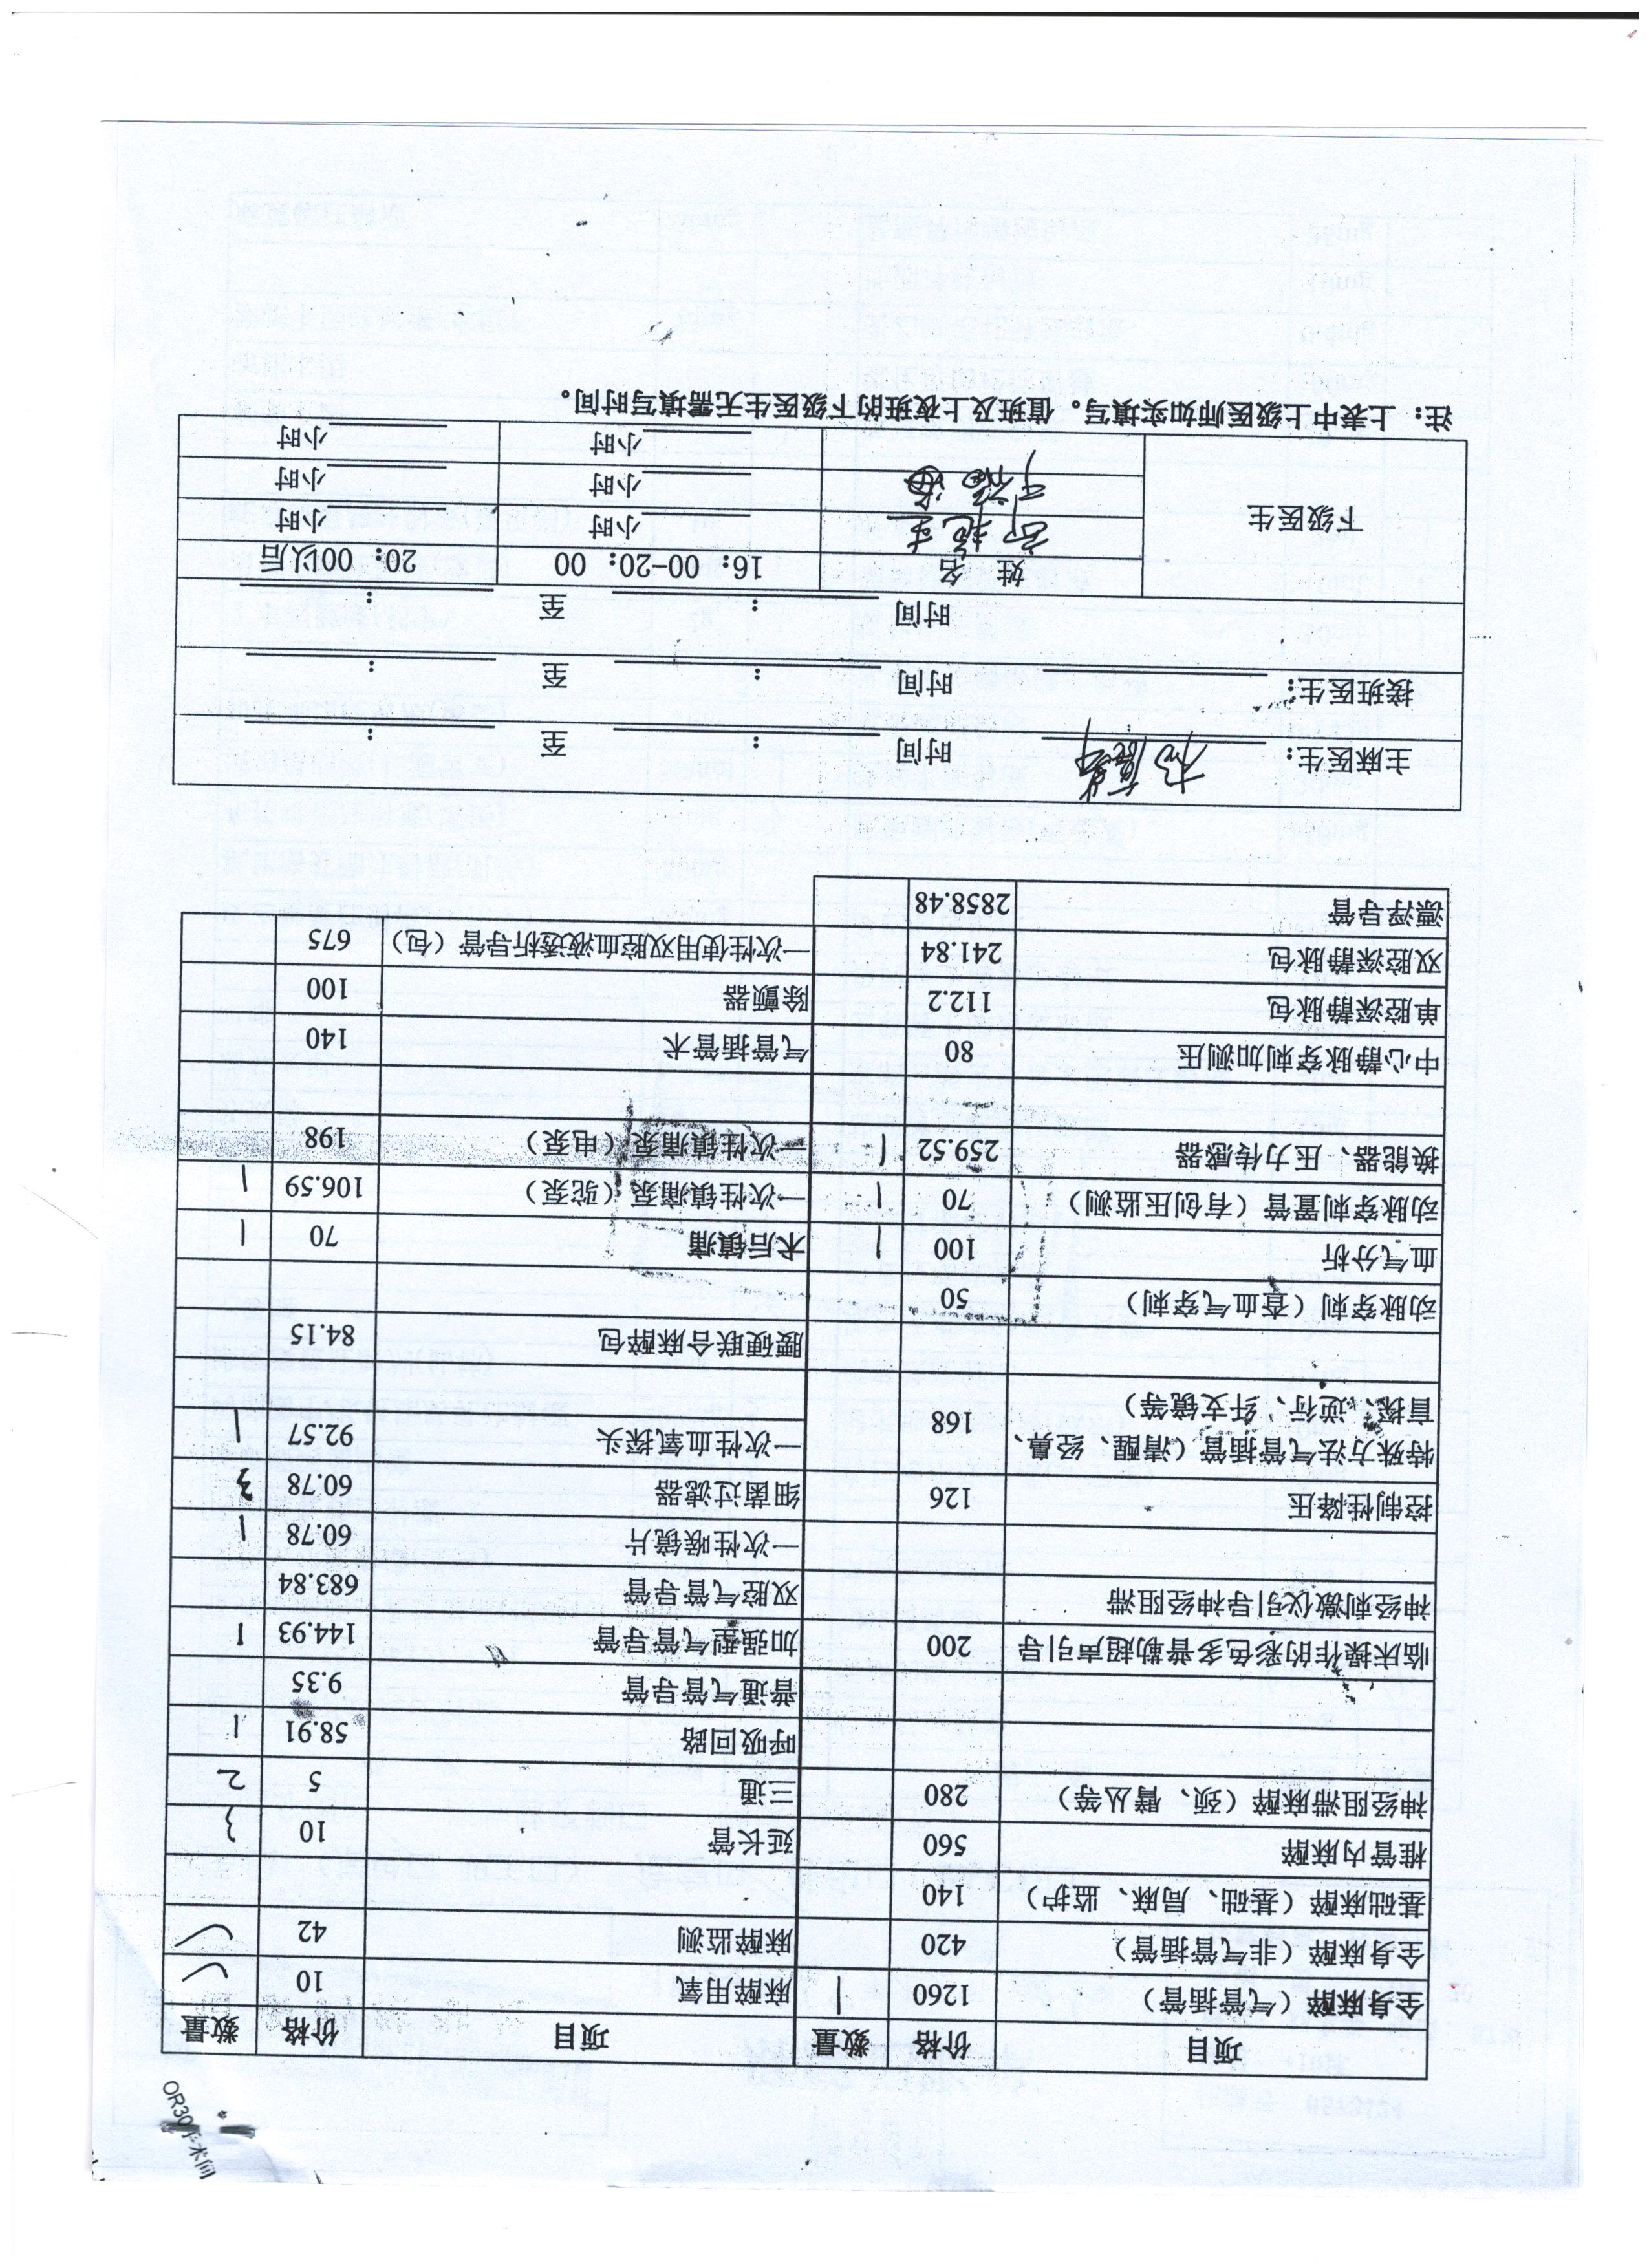 OR30手术间
项目 价格 数量 项目 价格 数量
全身麻醉（气管插管） 1260 1 麻醉用氧 10 ✓
全身麻醉（非气管插管） 420 麻醉监测 42 ✓
基础麻醉（基础、局麻、监护） 140
椎管内麻醉 560 延长管 10 3
神经阻滞麻醉（颈、臂丛等） 280 三通 5 2
呼吸回路 58.91 1
普通气管导管 9.35
临床操作的彩色多普勒超声引导 200 加强型气管导管 144.93 1
神经刺激仪引导神经阻滞 双腔气管导管 683.84
一次性喉镜片 60.78 1
控制性降压 126 细菌过滤器 60.78 3
特殊方法气管插管（清醒、经鼻、
盲探、逆行、纤支镜等） 168 一次性血氧探头 92.57 1
腰硬联合麻醉包 84.15
动脉穿刺（查血气穿刺） 50
血气分析 100 1 术后镇痛 70 1
动脉穿刺置管（有创压监测） 70 1 一次性镇痛泵（驼泵） 106.59 1
换能器、压力传感器 259.52 1 一次性镇痛泵（电泵） 198
中心静脉穿刺加测压 80 气管插管术 140
单腔深静脉包 112.2 除颤器 100
双腔深静脉包 241.84 一次性使用双腔血液透析导管（包） 675
漂浮导管 2858.48
主麻医生： 时间 ： 至 ：
接班医生： 时间 ： 至 ：
时间 ： 至 ：
下级医生 姓 名 16：00-20：00 20：00以后
小时 小时
小时 小时
小时 小时
注：上表中上级医师如实填写。值班及上夜班的下级医生无需填写时间。